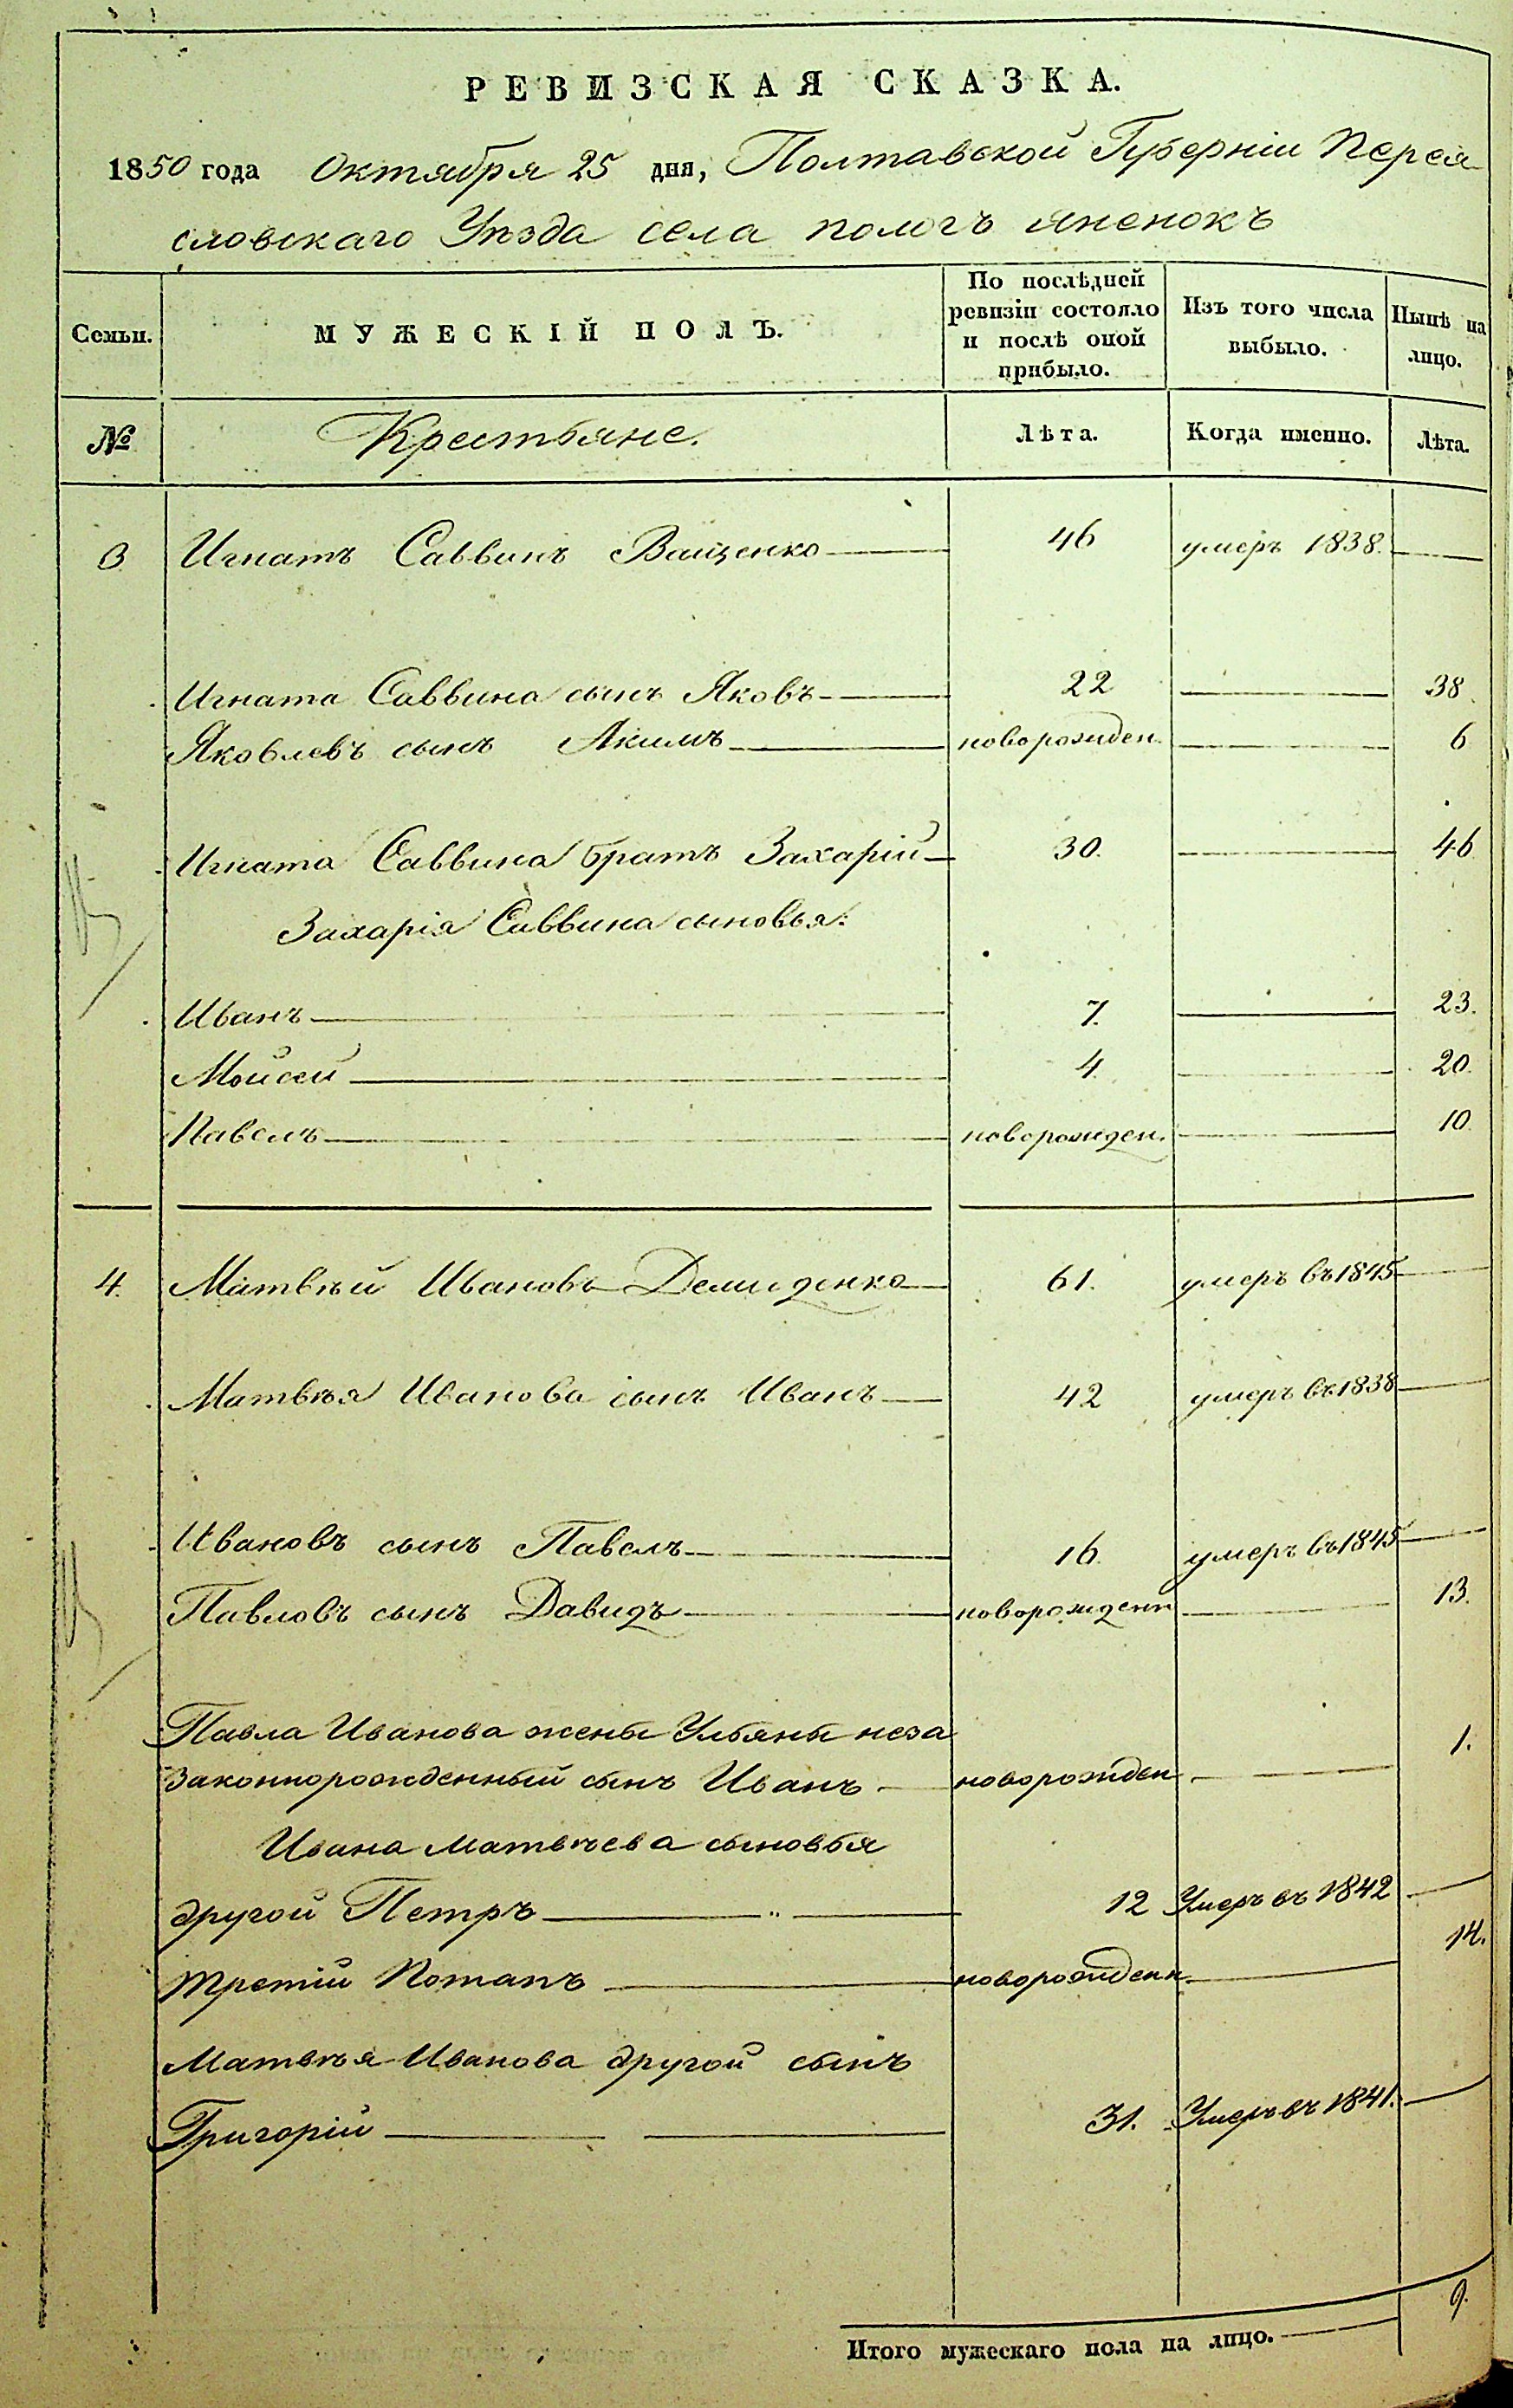 РЕВИЗСКАЯ СКАЗКА.
1850 года Октября 25 дня, Полтавской Губерніи Перея
словскаго Уѣзда села пологъ яненокъ
Семьи. МУЖЕСКІЙ ПОЛЪ. По послѣдней ревизіи состояло и послѣ оной прибыло. Изъ того числа выбыло. Нынѣ на лицо.
№ Крестьяне. Лѣта. Когда именно. Лѣта.
3 Игнатъ Саввинъ Ващенко 46 умеръ 1838.
Игната Саввина сынъ Яковъ 22 38
Яковлевъ сынъ Акимъ новорожден. 6
Игната Саввина братъ Захарій 30. 46
Захарія Саввина сыновья:
Иванъ 7. 23.
Мойсей 4 20.
Павелъ новорожден. 10
4. Матвѣй Ивановъ Демиденко 61. умеръ въ 1845
Матвѣя Иванова сынъ Иванъ 42 умеръ въ 1838
Ивановъ сынъ Павелъ 16. умеръ въ 1845
Павловъ сынъ Давидъ новорожденн 13.
Павла Иванова жены Ульяны неза
законнорожденный сынъ Иванъ новорожден 1.
Ивана Матвѣева сыновья
другой Петръ 12 Умеръ въ 1842
третій Потапъ новорожденн. 14.
Матвѣя Иванова другой сынъ
Григорій 31. Умеръ въ 1841.
Итого мужескаго пола на лицо. 9.